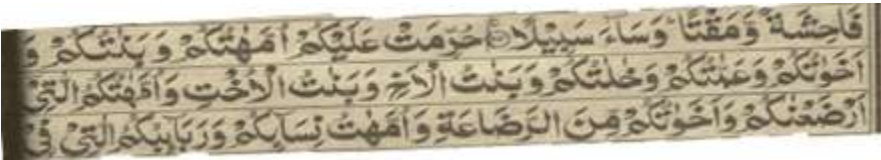 فَاحِشَةً وَّمَقْتًا ؕ وَسَآءَ سَبِيْلًا ۞ حُرِّمَتْ عَلَيْكُمْ اُمَّهٰتُكُمْ وَ بَنٰتُكُمْ وَ
اَخَوٰتُكُمْ وَعَمّٰتُكُمْ وَخٰلٰتُكُمْ وَبَنٰتُ الْاَخِ وَبَنٰتُ الْاُخْتِ وَاُمَّهٰتُكُمُ الّٰتِیْۤ
اَرْضَعْنَكُمْ وَاَخَوٰتُكُمْ مِّنَ الرَّضَاعَةِ وَاُمَّهٰتُ نِسَآىِٕكُمْ وَرَبَآىِٕبُكُمُ الّٰتِیْ فِیْ